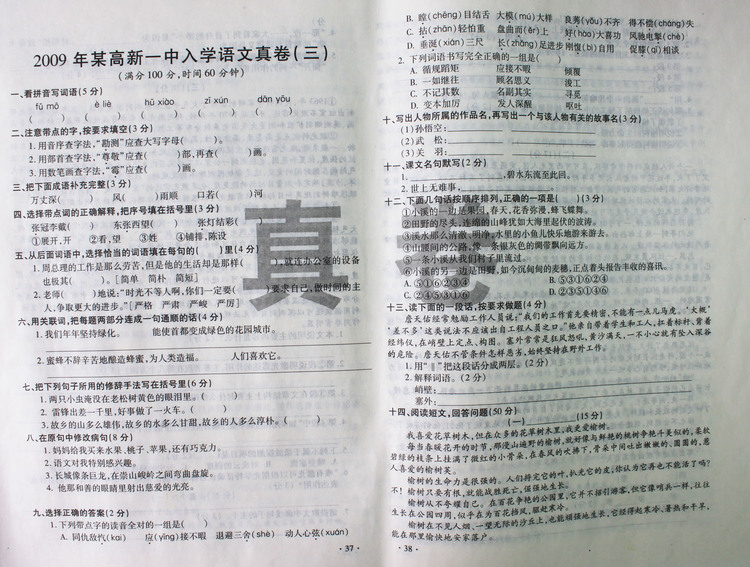 2009 年某高新一中入学语文真卷(三)
(满分 100 分,时间 60 分钟)
一、看拼音写词语(5 分)
fǔ mō    è liè    hū xiào    zǐ xún    dàn yōu
(    )    (    )    (    )    (    )    (    )
二、注意带点的字,按要求填空(3 分)
1. 用音序查字法,“勘测”应查大写字母(    )。
2. 用部首查字法,“尊敬”应查(    )部,再查(    )画。
3. 用数笔画查字法,“霉”应查(    )画。
三、把下面成语补充完整(3 分)
万丈深(    )    风(    )雨顺    口若(    )河
四、选择带点词的正确解释,把序号填在括号里(3 分)
张冠李戴(    )    东张西望(    )    张灯结彩(    )
①展开,开    ②看,望    ③姓    ④铺排,陈设
五、从后面词语中,选择恰当的词语填在每句的(    )里(4 分)
1. 周总理的工作是那么劳苦,但是他的生活却是那样(    ),就连办公室的设备
也极其(    )。[简单 简朴 简短]
2. 老师(    )地说:“时光不等人啊,你们一定要(    )要求自己,做时间的主
人,争取更大的进步。”[严格 严肃 严峻 严厉]
六、用关联词,把每题两部分连成一句通顺的话(4 分)
1. 我们年年坚持绿化。    能使首都变成绿色的花园城市。
2. 蜜蜂不辞辛苦地酿造蜂蜜,为人类造福。    人们喜欢它。
七、把下列句子所用的修辞手法写在括号里(6 分)
1. 两只小虫淹没在老松树黄色的眼泪里。(    )
2. 雷锋出差一千里,好事做了一火车。(    )
3. 故乡的山多么雄伟,故乡的水多么甘甜,故乡的人多么淳朴。(    )
八、在原句中修改病句(8 分)
1. 妈妈给我买来水果、桃子、苹果,还有巧克力。
2. 语文对我特别感兴趣。
3. 长城像条巨龙,在崇山峻岭之间弯曲盘旋。
4. 他那和善的眼睛里射出慈爱的光亮。
九、选择正确的答案(2 分)
1. 下列带点字的读音全对的一组是(    )
A. 同仇敌忾(kai)    应(yīng)接不暇    退避三舍(shè)    动人心弦(xuán)
· 37 ·
B. 瞠(chēng)目结舌    大模(mú)大样    良莠(yǒu)不齐    得不偿(cháng)失
C. 拈(zhān)轻怕重    盘曲而(ěr)上    好(hào)大喜功    风驰电掣(chè)
D. 垂涎(xián)三尺    长(zhǎng)足进步    刚愎(bì)自用    促膝(qī)相谈
2. 下列词语书写完全正确的一组是(    )
A. 循规蹈矩    应接不暇    倾覆
B. 一如继往    顾名思义    浚工
C. 不记其数    名副其实    寻觅
D. 变本加厉    发人深醒    呕吐
十、写出人物所属的作品名,再写出一个与该人物有关的故事名(3 分)
(1) 孙悟空:
(2) 武 松:
(3) 关 羽:
十一、课文名句默写(2 分)
1.    ,碧水东流至此回。
2. 世上无难事,    。
十二、下面几句话按顺序排列,正确的一项是(    )(3 分)
①小溪的一边是果园,春天,花香弥漫,蜂飞蝶舞。
②田野的尽头,连绵的山峰犹如大海里起伏的波涛。
③溪水那么清澈、明净,水里的小鱼儿快乐地游来游去。
④山腰间的公路,像一条银灰色的绸带飘向远方。
⑤一条小溪从我们村子里流过。
⑥小溪的另一边是田野,如今沉甸甸的麦穗,正点着头报告丰收的喜讯。
A. ⑤①⑥②③④    B. ⑤③①⑥②④
C. ②④⑤③①⑥    D. ②③⑤①④⑥
十三、读下面的一段话,按要求做题(4 分)
詹天佑经常勉励工作人员说:“我们的工作首先要精密,不能有一点儿马虎。‘大概’
‘差不多’这类说法不应该出自工程人员之口。”他亲自带着学生和工人,扛着标杆,背着
经纬仪,在峭壁上定点,构图。塞外常常是狂风怒吼,黄沙满天,一不小心就有坠入深谷
的危险。詹天佑不管条件怎样恶劣,始终坚持在野外工作。
1. 用“‖”把这段话分成两层。(2 分)
2. 解释词语。(2 分)
峭壁:
塞外:
十四、阅读短文,回答问题(50 分)
(一)    (15 分)
我喜爱花草树木,但在众多的花草树木里,我更爱榆树。
每当春暖花开的时节,那漫山遍野的榆树,就好像与鲜艳的桃树争艳斗美似的,柔软
碧绿的枝条上挂满了微红的小骨朵,在春风的吹拂下,骨朵中间吐出嫩嫩的、圆圆的,惹
人喜爱的榆树荚。
榆树的生命力是很强的。人们捋完它的叶,扒光它的皮,你认为它再也不能活了吗?
不!榆树只要有根,就能战胜死亡,顽强地生长。
榆树从不夸耀自己。在百花争艳的公园里,它并不招引游客,但它像哨兵一样,往往
生长在公园四周,似乎在为百花挡风,驱赶寒冷。
榆树在不见人烟,一望无际的沙丘上,也能顽强地生长,它经得起寒冷、暑热和干旱,
能在那里愉快地安家落户。
· 38 ·
真